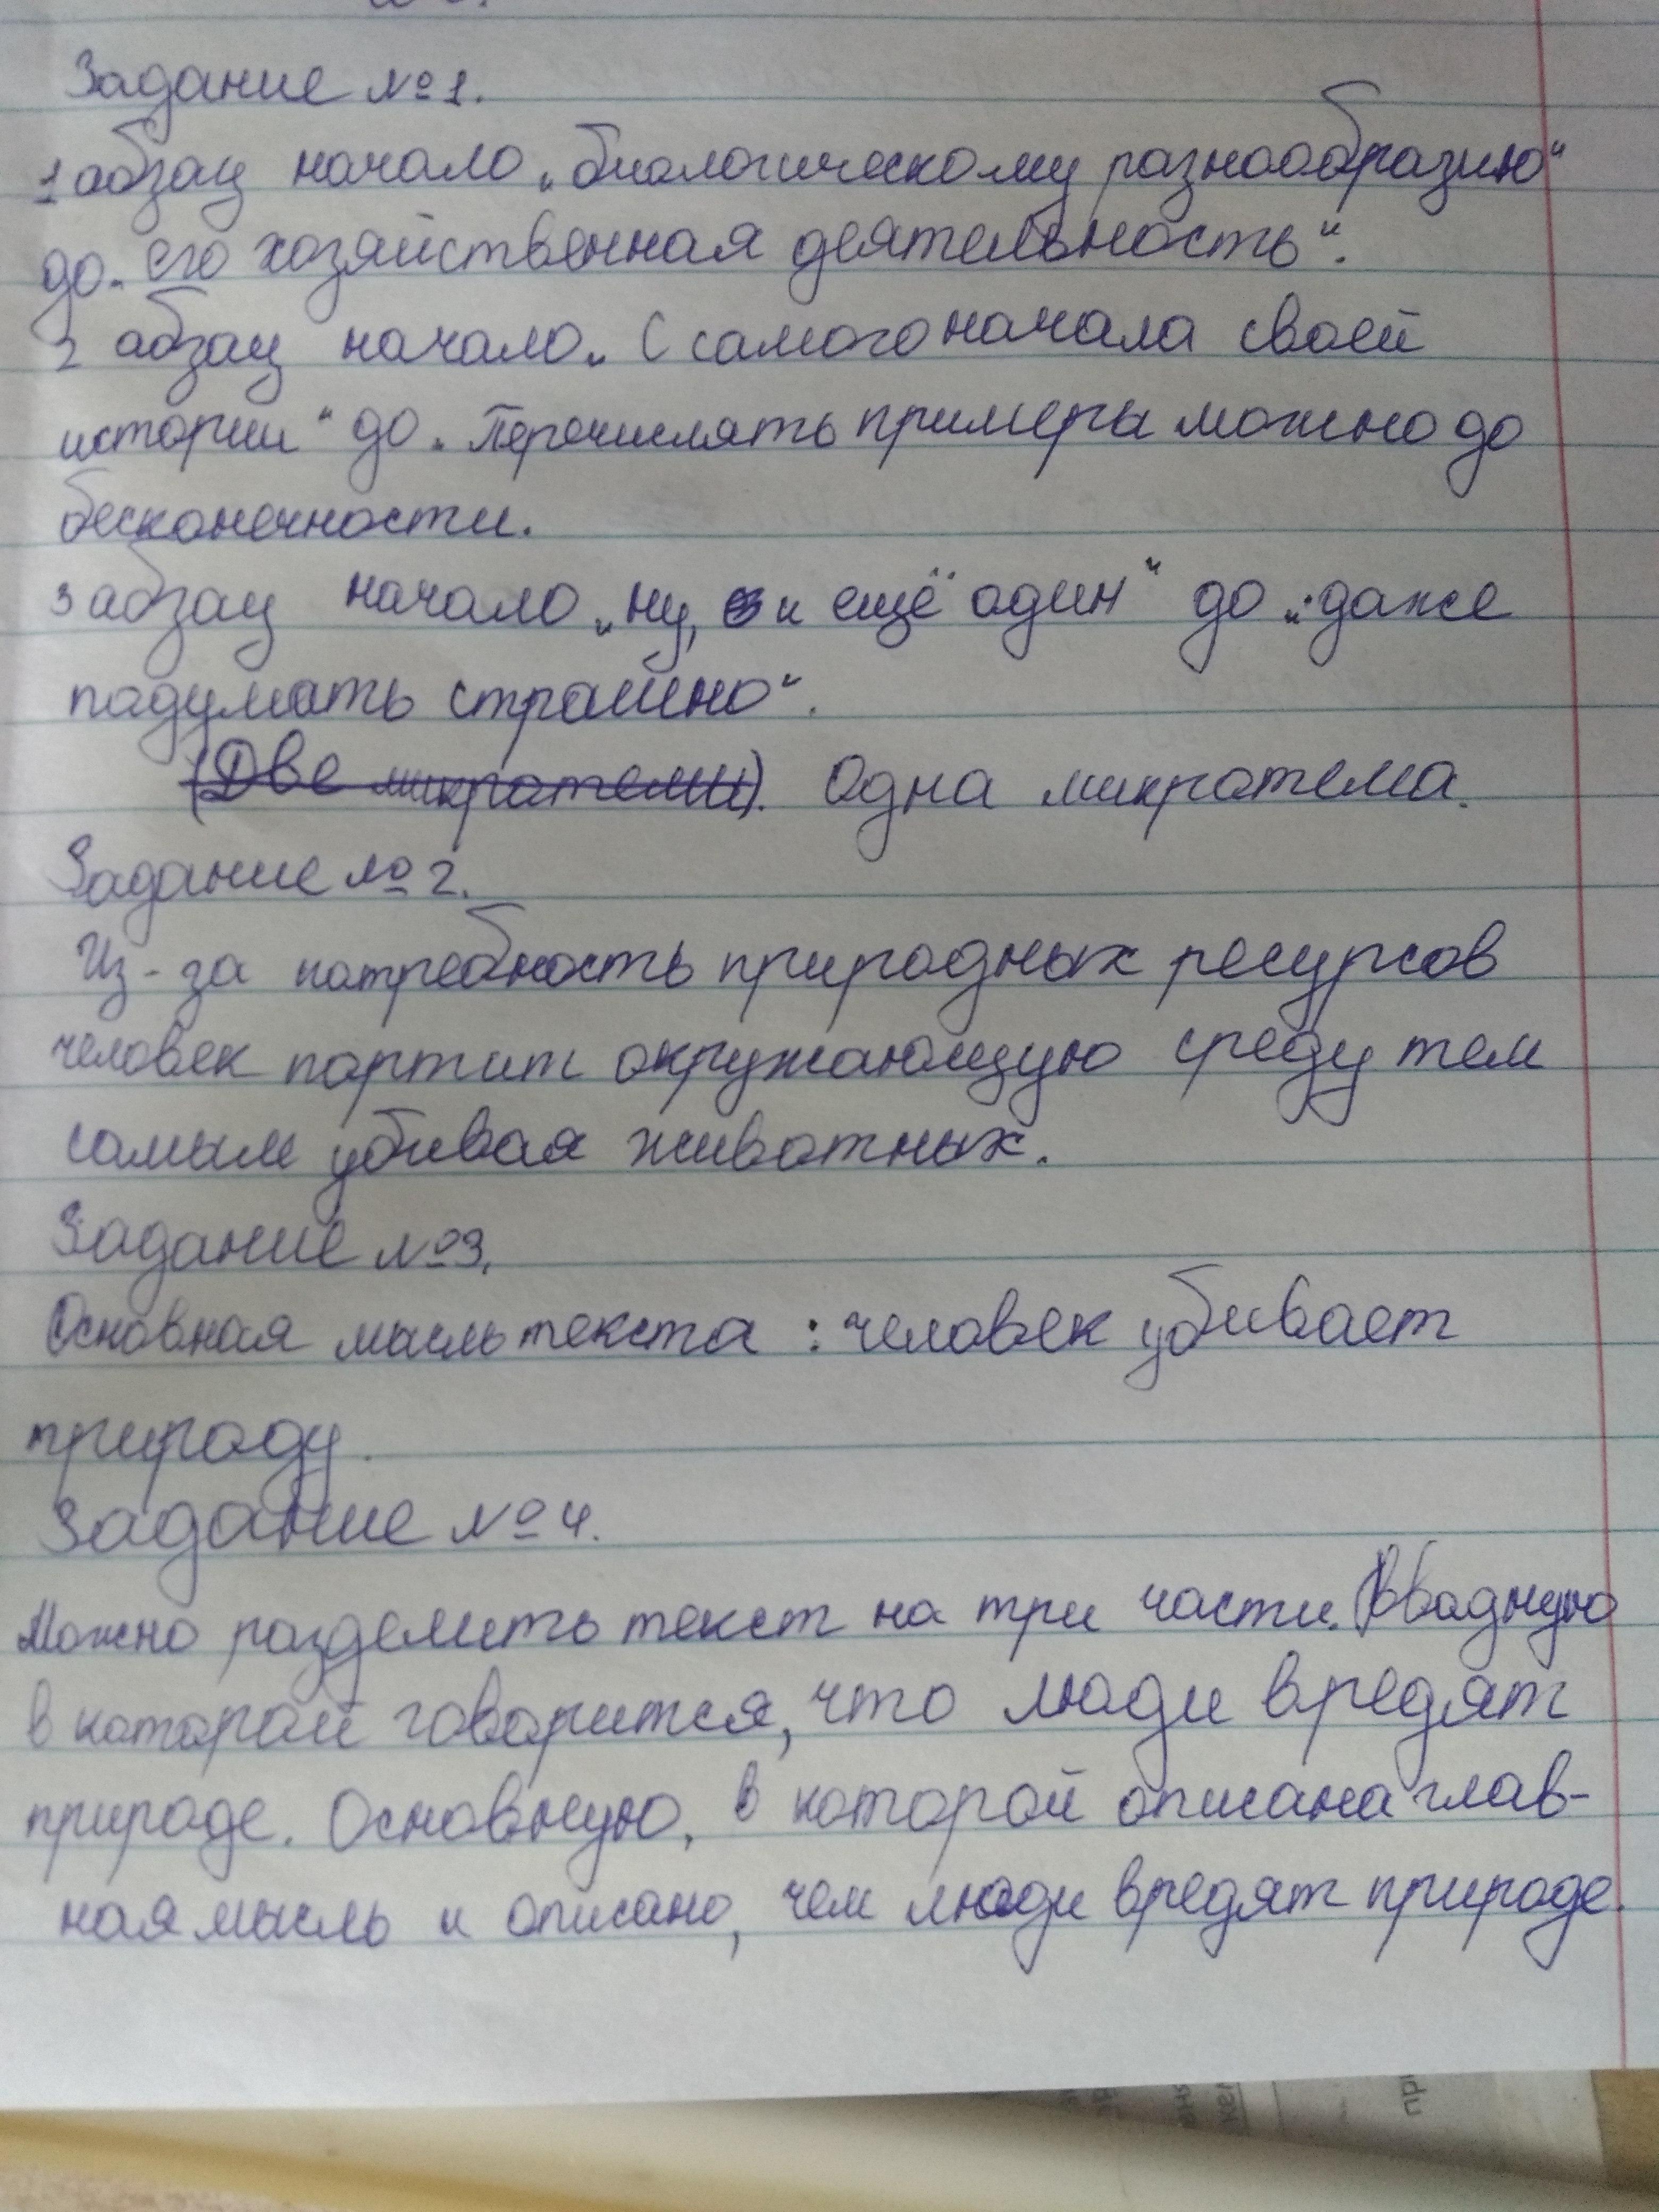 Задание №1.
1 абзац начало „биологическому разнообразию"
до „его хозяйственная деятельность".
2 абзац начало „С самого начала своей
истории" до „Перечислять примеры можно до
бесконечности.
3 абзац начало „ну, и ещё один" до „даже
подумать страшно".
(Две микротемы). Одна микротема.
Задание №2.
Из-за потребность природных ресурсов
человек портит окружающую среду тем
самым убивая животных.
Задание №3.
Основная мысль текста : человек убивает
природу.
Задание №4.
Можно разделить текст на три части. Вводную
в которой говорится, что люди вредят
природе. Основную, в которой описана глав-
ная мысль и описано, чем люди вредят природе.